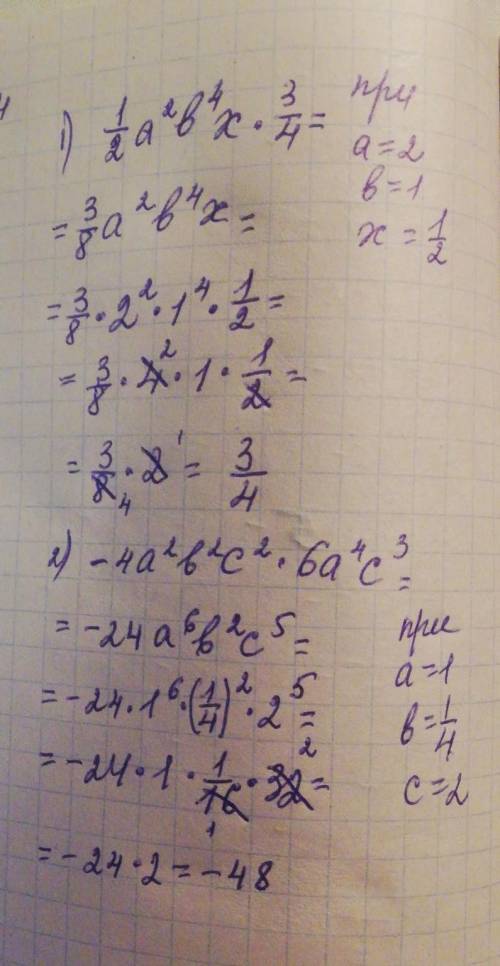 1) 1/2 a²b⁴x · 3/4 =
при
a = 2
b = 1
x = 1/2
= 3/8 a²b⁴x =
= 3/8 · 2² · 1⁴ · 1/2 =
= 3/8 · 4 2 · 1 · 1/2 =
= 3/8 4 · 2 1 = 3/4
2) -4a²b²c² · 6a⁴c³ =
= -24a⁶b²c⁵ =
при
a = 1
b = 1/4
c = 2
= -24 · 1⁶ · (1/4)² · 2⁵ =
= -24 · 1 · 1/16 1 · 32 2 =
= -24 · 2 = -48